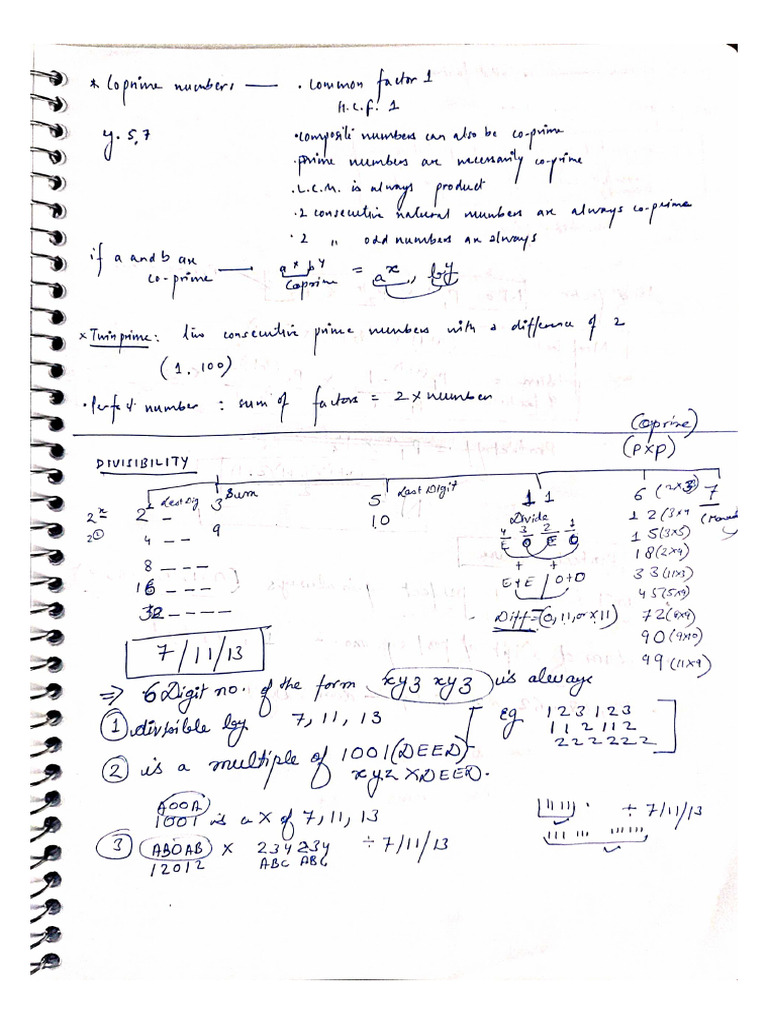 * Coprime numbers — . Common factor 1
H.C.F. 1
eg. 5,7
. composite numbers can also be co-prime
. prime numbers are necessarily co-prime
. L.C.M. is always product
. 2 consecutive natural numbers are always co-prime
. 2 " odd numbers are always
if a and b are co-prime — a^x b^y Coprime = a^x, b^y
* Twin prime : two consecutive prime numbers with a difference of 2
(1. 100)
. Perfect number : sum of factors = 2 x number
(Coprime)
(P x P)
DIVISIBILITY
2^x
2 Last Dig
4 - -
8 - - -
16 - - - -
32 - - - - -
3 Sum
9
5 Last Digit
10
11
Divide
4 3 2 1
E O E O
+ +
E+E / O+O
Diff = (0, 11, or x 11)
6 (2x3)
12 (3x4
15 (3x5)
18 (2x9)
33 (11x3)
45 (5x9)
72 (8x9)
90 (9x10)
99 (11x9)
7
7/11/13
⇒ 6 Digit no. of the form xyz xyz is always
① divisible by 7, 11, 13
Eg 123 123
112 112
222222
② is a multiple of 1001 (DEED)
xyz x DEED.
A00A
1001 is a X of 7, 11, 13
③ AB0AB x 234 234 ÷ 7/11/13
12012 ABC ABC
|||||| . ÷ 7/11/13
||| ||| ||| |||